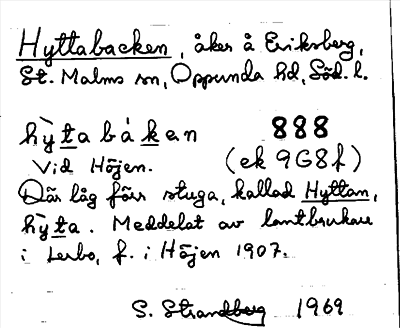 Hyttabacken, åker å Eriksberg,
St. Malms sn, Oppunda hd, Söd. l.
hy̆̀tabákan 888
Vid Höjen. (ek 9G8f)
Där låg förr stuga, kallad Hyttan,
hy̆̀ta. Meddelat av lantbrukare
i Lerbo, f. i Höjen 1907.
S. Strandberg 1969